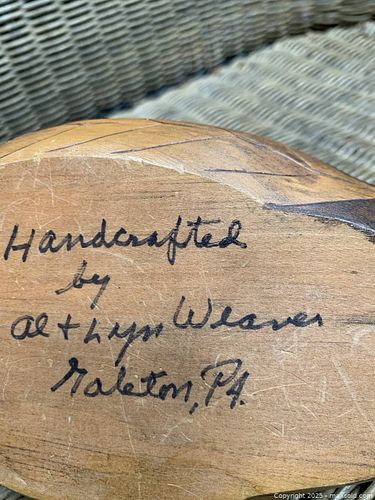 Handcrafted
by
Al + Lyn Weaver
Galeton, PA.
Copyright 2025 - maxsold.com